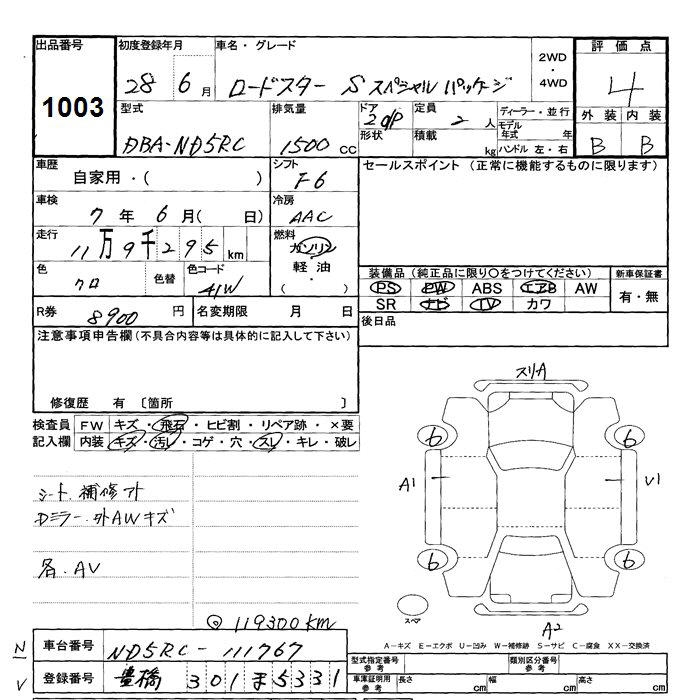 出品番号 初度登録年月 車名・グレード 2WD・4WD 評価点
1003 28 6月 ロードスター Sスペシャルパッケージ 4
型式 排気量 ドア 定員 ディーラー・並行 外装 内装
DBA-ND5RC 1500cc 2dP 2人 モデル年式 年 B B
形状 積載 kg ハンドル 左・右
車歴 シフト セールスポイント (正常に機能するものに限ります)
自家用・( ) F6
車検 冷房
7年6月( 日) AAC
走行 燃料
11万9千295km ガソリン
軽油
・( )
色 色替 色コード 装備品(純正品に限り○をつけてください) 新車保証書
クロ 41W PS PW ABS エアB AW 有・無
SR ナビ TV カワ
R券 8900円 名変期限 月 日 後日品
注意事項申告欄(不具合内容等は具体的に記入して下さい)
修復歴 有 〔箇所 〕
検査員 FW キズ・飛石・ヒビ割・リペア跡・×要
記入欄 内装 キズ・汚レ・コゲ・穴・スレ・キレ・破レ
シート.補修ア下
Dミラー.外AWキズ
各.AV
◎119300KM
スリA
6 6
A1 V1
6 6
スペア
A2
A-キズ E-エクボ U-凹み W-補修跡 S-サビ C-腐食 XX-交換済
N 車台番号 ND5RC-111767 型式指定番号 参考 類別区分番号 参考
V 登録番号 豊橋 301 ま 5331 車庫証明用 参考 長さ cm 幅 cm 高さ cm